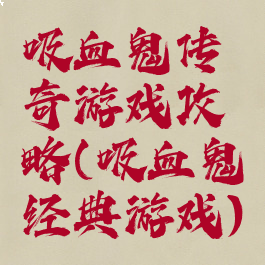 吸血鬼传
奇游戏攻
略(吸血鬼
经典游戏)